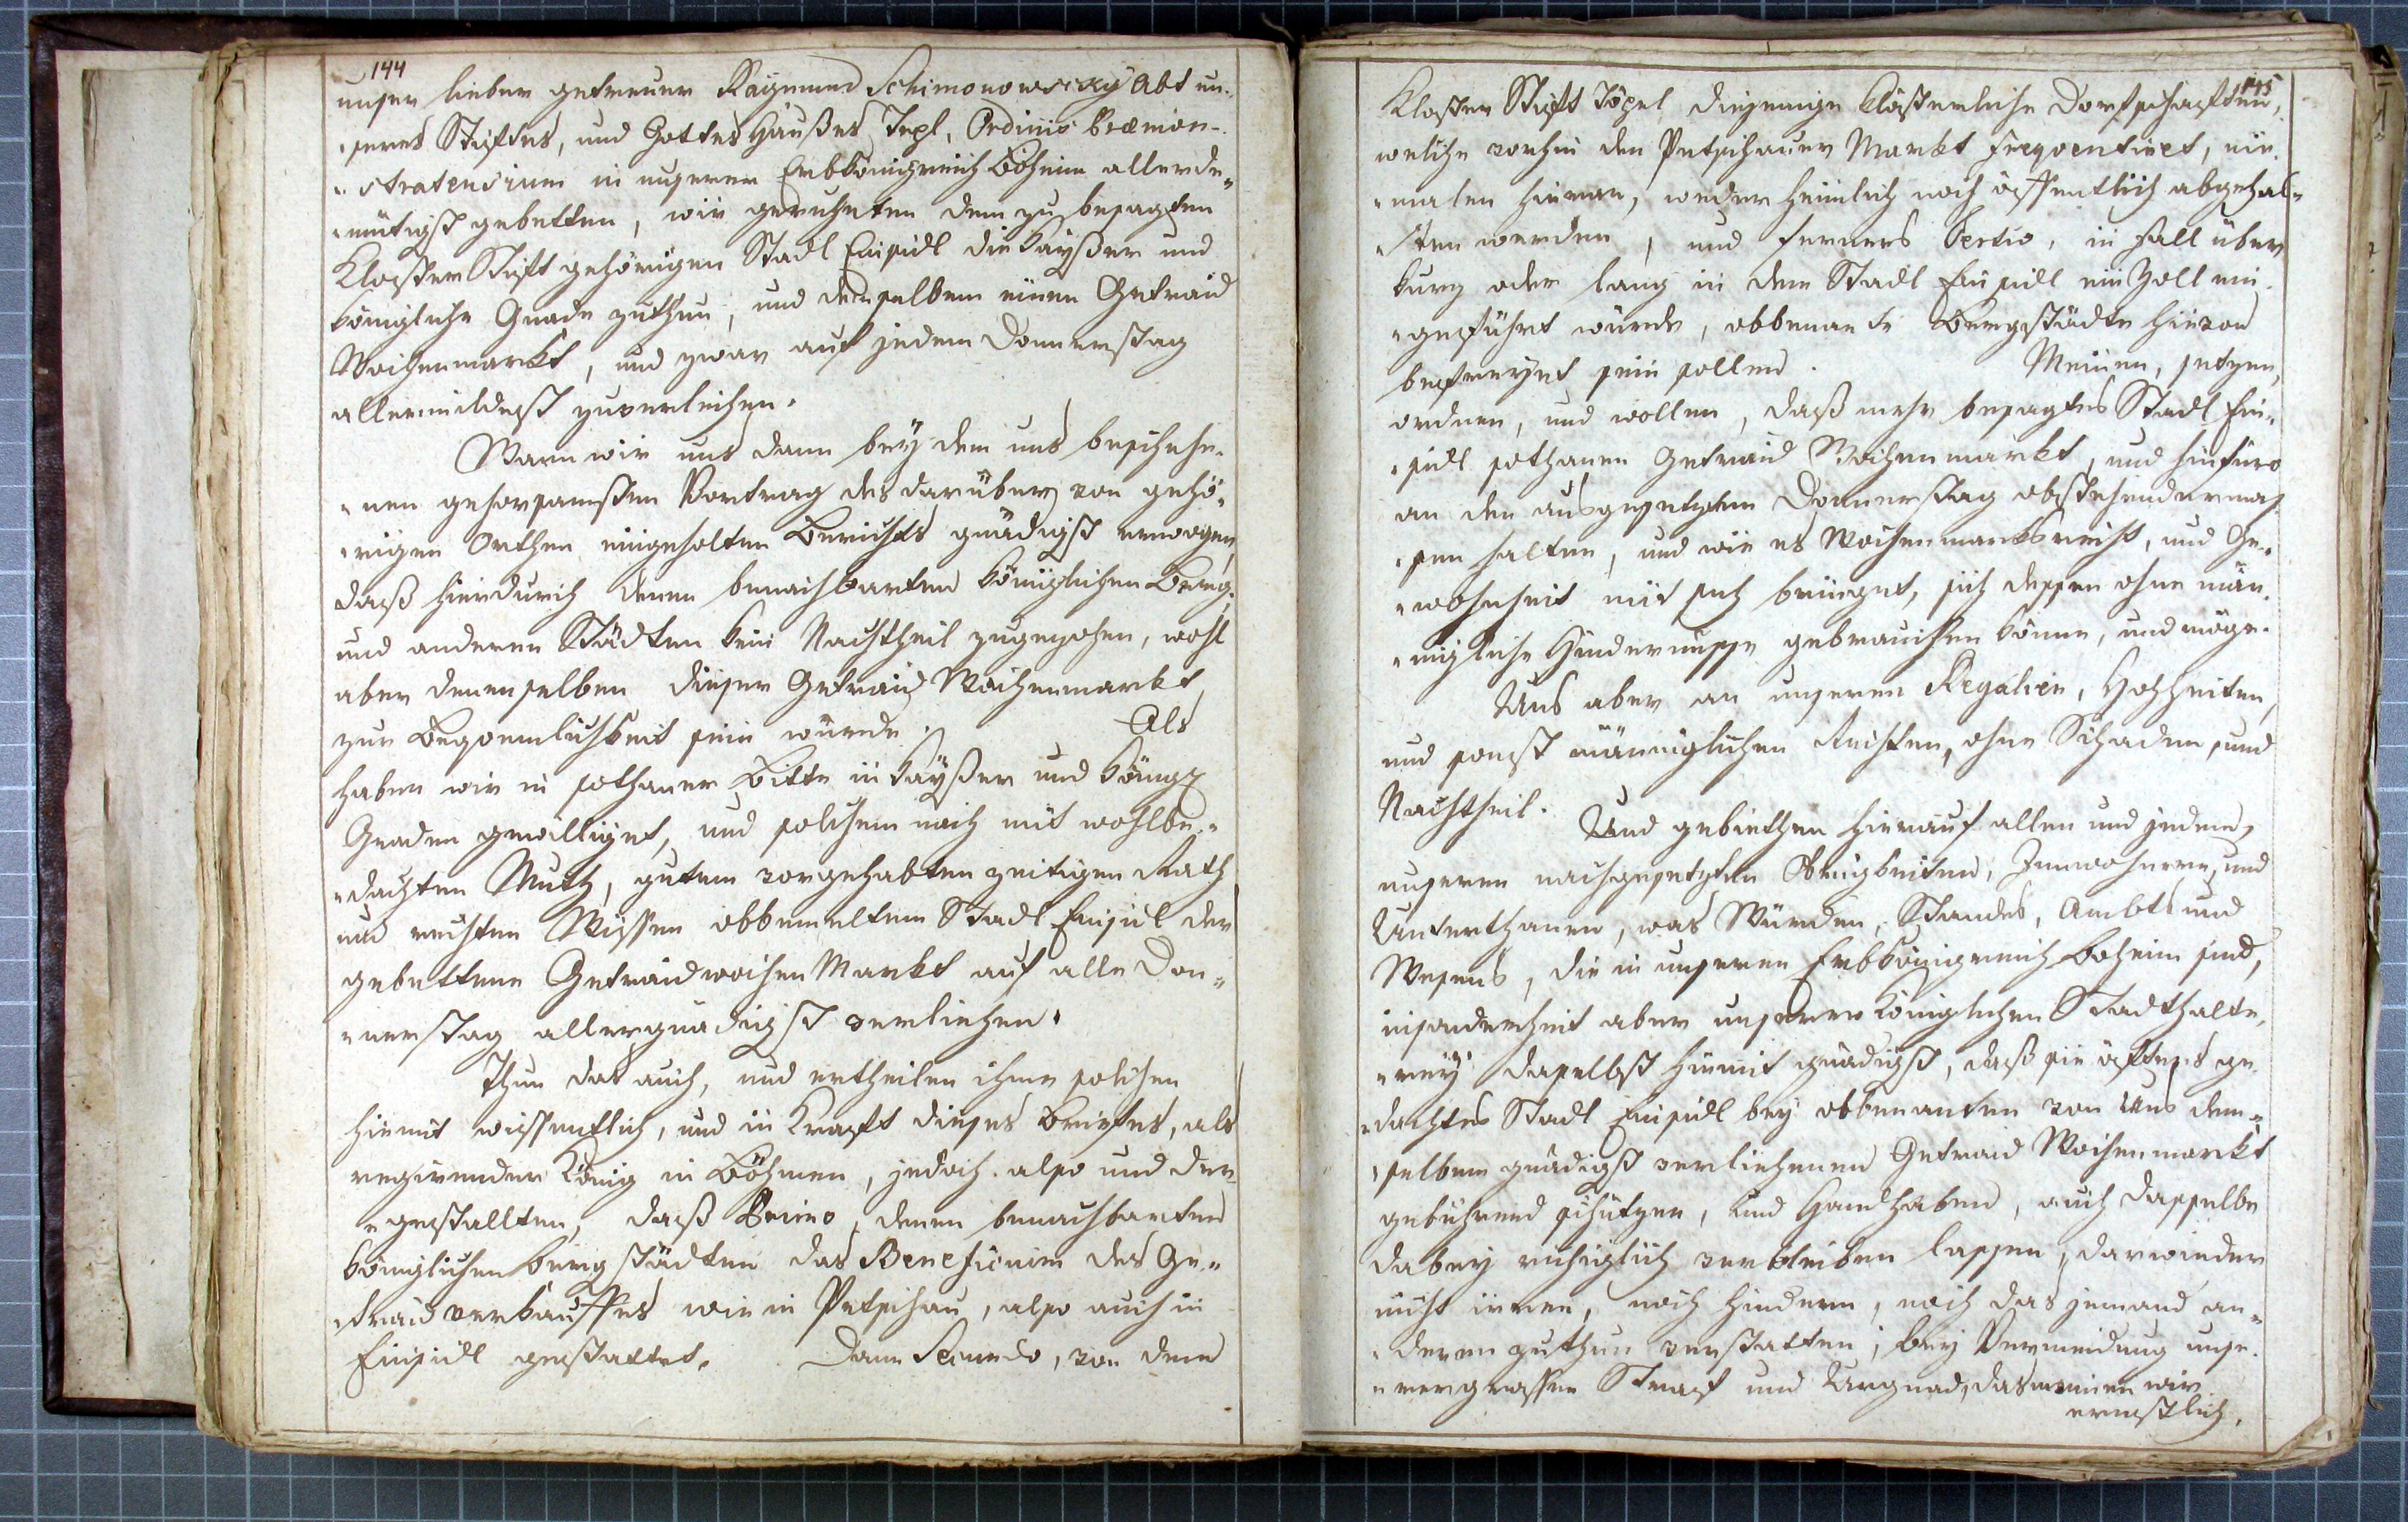 144
unser lieber getreuer Raymund Schimonowsky Abt un-
seres Stiftes, und Gottes Haußes Tepl, Ordinis Præmon-
stratensium in unserem Erbkönigreich Böheim allerde-
mütigst gebetten, wir geruheten dem zu besagten
Kloster Stift gehörigen Stadl Einsidl die Kayßer und
königliche Gnade zuthun, und demselbem einen Getraid
Wochenmarkt, und zwar auf jedem Donnerstag
allermildest zuverleihen.
Wann wir uns dann bey dem uns beschehe-
nen gehorsamsten Vortrag des darüber von gehö-
rigen Orthen eingeholten Berichts gnädigst erwogen,
daß hierdurch denen benachbarten königlichen Berg-
und anderen Städten kein Nachtheil zugezohen, wohl
aber denenselben dieser Getraid Wochenmarkt
zur Beqvemlichkeit sein würde. Als
haben wir in sothaner Bitte in Kayßer und Köngl
Gnaden gewilliget, und solchem nach mit wohlbe-
dachten Muth, gutem vorgehabten zeitigen Rath
und rechten Wissen obbemeltem Stadl Einsidl der
gebettene Getraidwochen Markt auf alle Don-
nerstag allergnädigst verliehen.
Thun das auch, und ertheilen ihme solchen
hiemit wissentlich, und in Kraft dieses Briefes, als
regirender König in Böhmen, jedoch also und der-
gestallten, daß Primo, denen benachbarten
königlichen Bergstädten das Beneficium des Ge-
traid verkauffes wie in Petschau, also auch in
Einsidl gestattet. Dann Secundo, von dem
145
Kloster Stift Töpel diejenige Klösterliche Dorfschafften,
welche vorhin den Petschauer Markt freqventiret, nie-
malen hieran, weder heimlich noch öffentlich abgehal-
ten werden, und ferners Tertio, in fall über
kurz oder lang in dem Stadl Einsidl ein Zoll ein-
geführt würde, obbenante Bergstädte hievon
befreyet sein sollen. Meinen, setzen,
ordnen, und wollen, daß mehr besagtes Stadl Ein-
sidl sothanen Getraid Wochenmarkt, und hinfüro
an den ausgesetzten Donnerstag obstehendermas-
sen halten, und wie es Wochenmarktsrecht, und Ge-
wohnheit mit sich bringet, sich dessen ohne män-
nigliche Hindernusse gebrauchen könne, und möge.
Uns aber an unseren Regalien, Hochheiten,
und sonst männiglichen Rechten, ohne Schaden, und
Nachtheil. Und gebiethen hierauf allen und jeden
unseren nachgesetzten Obrigkeiten, Innwohnern, und
Unterthanen, was Würden, Standes, Ambts und
Wesens, die in unserem Erbkönigreich Boheim sind,
insonderheit aber unserer königlichen Stadthalte-
rey daselbst hiemit gnädigst, daß sie öfters ge-
dachtes Stadl Einsidl bey obbenanten von Uns dem-
selbem gnädigst verliehenen Getraid Wochenmarkt
gebührend schützen, und Handhaben, auch dasselbe
dabey ruhiglich verbleiben lassen, darwieder
nicht irren, noch hindern, noch das jemand an-
deren zuthun verstatten; bey Vermeidung unse-
rer grossen Straf und Ungnad, das meinen wir
ernstlich.